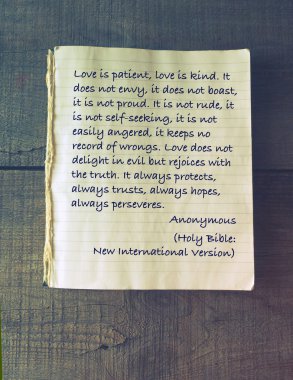 Love is patient, love is kind. It
does not envy, it does not boast,
it is not proud. It is not rude, it
is not self-seeking, it is not
easily angered, it keeps no
record of wrongs. Love does not
delight in evil but rejoices with
the truth. It always protects,
always trusts, always hopes,
always perseveres.
Anonymous
(Holy Bible:
New International Version)